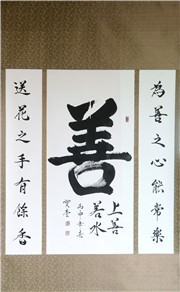 為善之心能常樂
善
上善
若水
丙申年春
送花之手有餘香